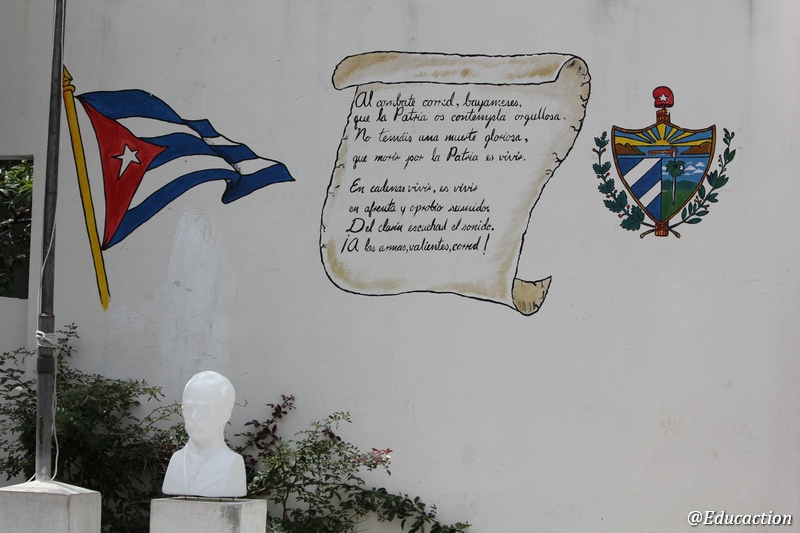 Al combate corred, bayameses,
que la Patria os contempla orgullosa.
No temáis una muerte gloriosa,
que morir por la Patria es vivir.
En cadenas vivir, es vivir
en afrenta y oprobio sumido.
Del clarín escuchad el sonido.
¡A las armas, valientes, corred!
@Educaction